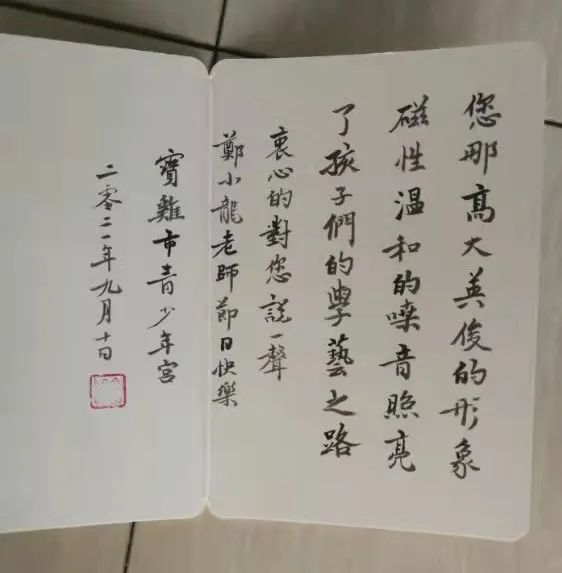 您那高大英俊的形象
磁性温和的嗓音照亮
了孩子們的學藝之路
衷心的對您説一聲
鄭小龍老師節日快樂
寳雞市青少年宮
二零二一年九月十日